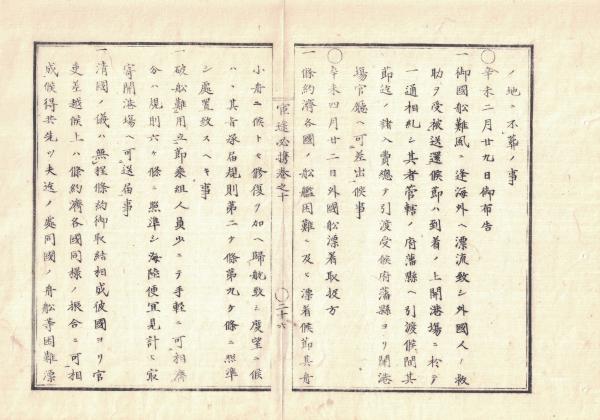 ノ地ニ不葬ノ事
〇辛未二月廿九日御布告
一御國船難風ニ逢海外ヘ漂流致シ外國人ノ救
助ヲ受被送還候節ハ到着ノ上開港塲ニ於テ
一通相糺シ其者管轄ノ府藩縣ヘ引渡候間其
節迄ノ諸入費總テ引渡受候府藩縣ヨリ開港
塲官廳ヘ可差出候事
〇辛未四月廿二日外國船漂着取扱方
一條約濟各國ノ船艦困難ニ及ヒ漂着候節其舟
官途必携巻之十
〇二十六
小舟ニ候トモ修復ヲ加ヘ歸航致シ度望ニ候
ハヽ其旨承届規則第二ケ條第九ケ條ニ照準
シ處置致スヘキ事
一破船難用立節乗組人員少ニテ手軽ニ可相濟
分ハ規則六ケ條ニ照準シ海陸便宜見計ヒ最
寄開港塲ヘ可送届事
一清國ノ儀ハ無程條約御取結相成彼國ヨリ官
吏差越候上ハ條約濟各國同様ノ振合ニ可相
成候得共先ツ夫迄ノ處同國ノ舟舩等困難漂